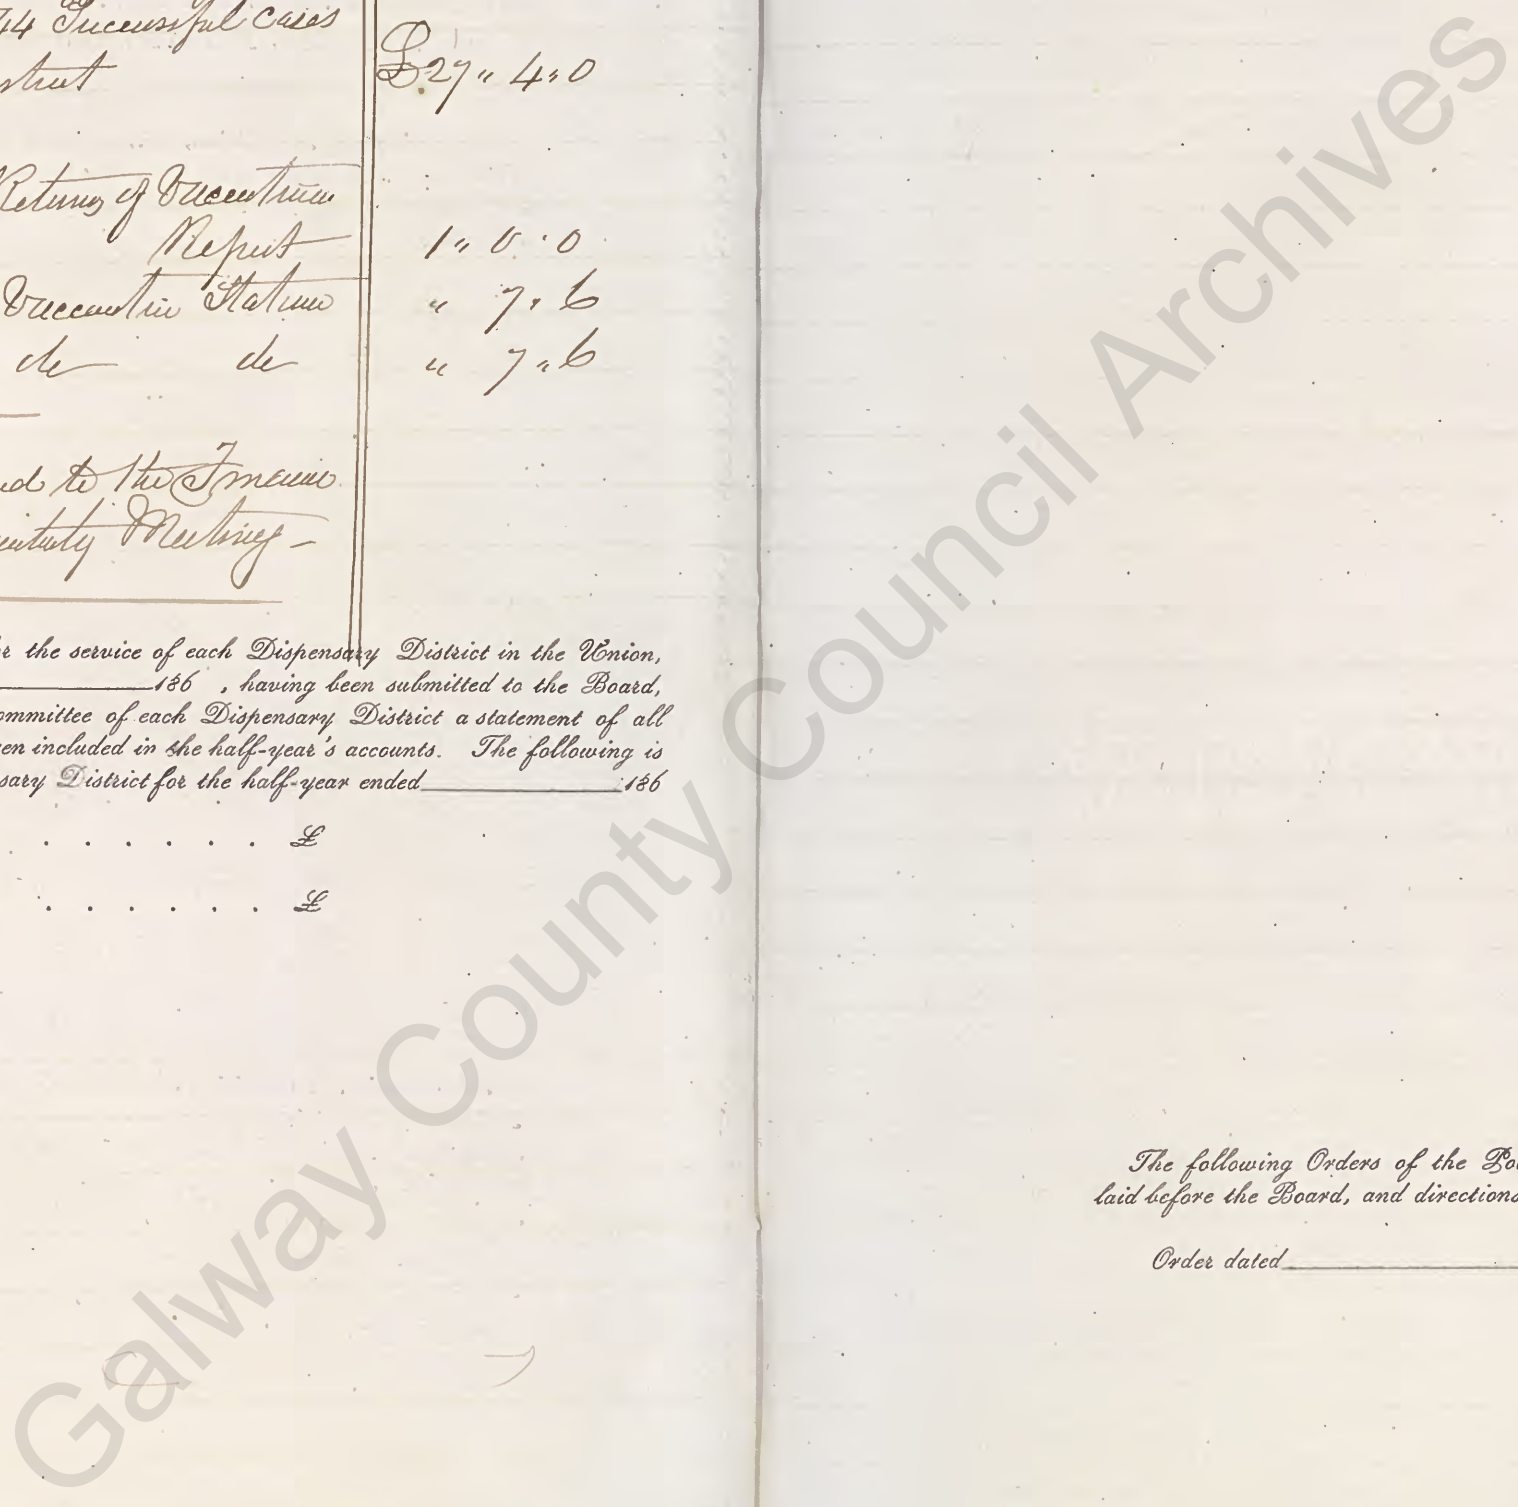 44 Successful Cases
strict £27 " 4 " 0
Returns of Vaccination
Report 1 " 0 " 0
Vaccination Station " 7 " 6
do do " 7 " 6
ed to the Finance
Meeting –
r the service of each Dispensary District in the Union,
186 , having been submitted to the Board,
ommittee of each Dispensary District a statement of all
en included in the half-year's accounts. The following is
sary District for the half-year ended 186
. . . . . . £
. . . . . . £
The following Orders of the Poo
laid before the Board, and directions
Order dated
Galway County Council Archives